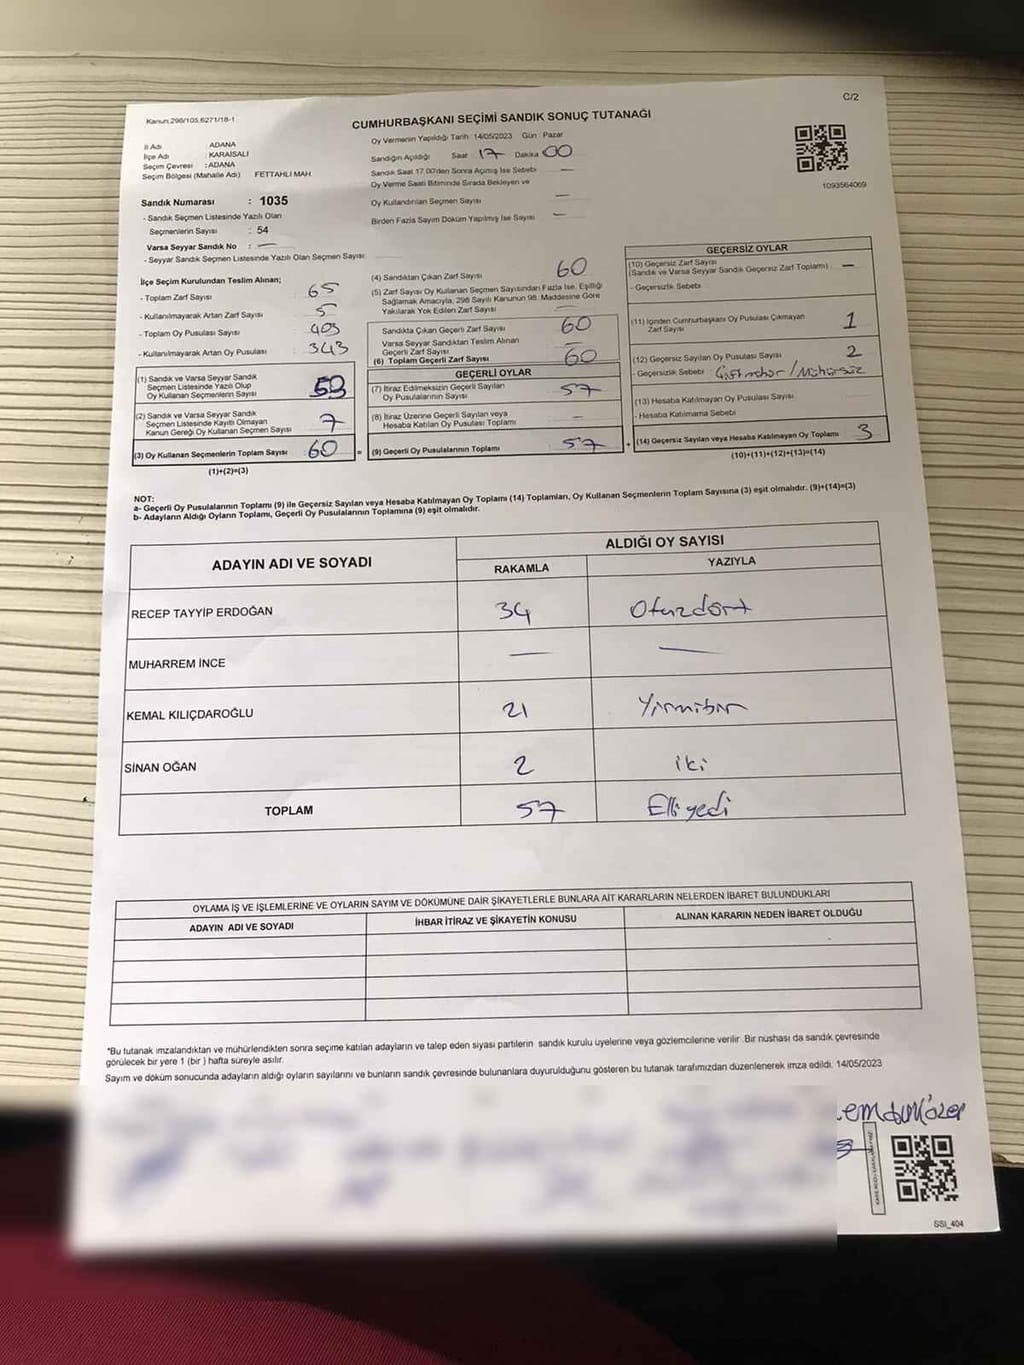 C/2
Kanun:298/105,6271/18-1
CUMHURBAŞKANI SEÇİMİ SANDIK SONUÇ TUTANAĞI
İli Adı : ADANA
İlçe Adı : KARAİSALI
Seçim Çevresi : ADANA
Seçim Bölgesi (Mahalle Adı) FETTAHLI MAH.
Oy Vermenin Yapıldığı Tarih :14/05/2023 Gün : Pazar
Sandığın Açıldığı Saat 17 Dakika 00
Sandık Saat 17.00'den Sonra Açılmış İse Sebebi —
Oy Verme Saati Bitiminde Sırada Bekleyen ve
Oy Kullandırılan Seçmen Sayısı —
Birden Fazla Sayım Döküm Yapılmış İse Sayısı —
1093564069
Sandık Numarası : 1035
- Sandık Seçmen Listesinde Yazılı Olan
Seçmenlerin Sayısı : 54
Varsa Seyyar Sandık No : —
- Seyyar Sandık Seçmen Listesinde Yazılı Olan Seçmen Sayısı
İlçe Seçim Kurulundan Teslim Alınan;
- Toplam Zarf Sayısı 65
- Kullanılmayarak Artan Zarf Sayısı 5
- Toplam Oy Pusulası Sayısı 403
- Kullanılmayarak Artan Oy Pusulası 343
(1) Sandık ve Varsa Seyyar Sandık
Seçmen Listesinde Yazılı Olup
Oy Kullanan Seçmenlerin Sayısı 53
(2) Sandık ve Varsa Seyyar Sandık
Seçmen Listesinde Kayıtlı Olmayan
Kanun Gereği Oy Kullanan Seçmen Sayısı 7
(3) Oy Kullanan Seçmenlerin Toplam Sayısı 60
(1)+(2)=(3)
(4) Sandıktan Çıkan Zarf Sayısı 60
(5) Zarf Sayısı Oy Kullanan Seçmen Sayısından Fazla İse, Eşitliği
Sağlamak Amacıyla, 298 Sayılı Kanunun 98. Maddesine Göre
Yakılarak Yok Edilen Zarf Sayısı —
Sandıkta Çıkan Geçerli Zarf Sayısı 60
Varsa Seyyar Sandıktan Teslim Alınan
Geçerli Zarf Sayısı —
(6) Toplam Geçerli Zarf Sayısı 60
GEÇERLİ OYLAR
(7) İtiraz Edilmeksizin Geçerli Sayılan
Oy Pusulasının Sayısı 57
(8) İtiraz Üzerine Geçerli Sayılan veya
Hesaba Katılan Oy Pusulası Toplamı —
= (9) Geçerli Oy Pusulalarının Toplamı 57
GEÇERSİZ OYLAR
(10) Geçersiz Zarf Sayısı
(Sandık ve Varsa Seyyar Sandık Geçersiz Zarf Toplamı) —
- Geçersizlik Sebebi
(11) İçinden Cumhurbaşkanı Oy Pusulası Çıkmayan
Zarf Sayısı 1
(12) Geçersiz Sayılan Oy Pusulası Sayısı 2
- Geçersizlik Sebebi: / Mühürsüz
(13) Hesaba Katılmayan Oy Pusulası Sayısı
- Hesaba Katılmama Sebebi
+ (14) Geçersiz Sayılan veya Hesaba Katılmayan Oy Toplamı 3
(10)+(11)+(12)+(13)=(14)
NOT:
a- Geçerli Oy Pusulalarının Toplamı (9) ile Geçersiz Sayılan veya Hesaba Katılmayan Oy Toplamı (14) Toplamları, Oy Kullanan Seçmenlerin Toplam Sayısına (3) eşit olmalıdır. (9)+(14)=(3)
b- Adayların Aldığı Oyların Toplamı, Geçerli Oy Pusulalarının Toplamına (9) eşit olmalıdır.
ADAYIN ADI VE SOYADI ALDIĞI OY SAYISI
RAKAMLA YAZIYLA
RECEP TAYYİP ERDOĞAN 34 Otuzdört
MUHARREM İNCE — —
KEMAL KILIÇDAROĞLU 21 Yirmibir
SİNAN OĞAN 2 iki
TOPLAM 57 Elli yedi
OYLAMA İŞ VE İŞLEMLERİNE VE OYLARIN SAYIM VE DÖKÜMÜNE DAİR ŞİKAYETLERLE BUNLARA AİT KARARLARIN NELERDEN İBARET BULUNDUKLARI
ADAYIN ADI VE SOYADI İHBAR İTİRAZ VE ŞİKAYETİN KONUSU ALINAN KARARIN NEDEN İBARET OLDUĞU
*Bu tutanak imzalandıktan ve mühürlendikten sonra seçime katılan adayların ve talep eden siyasi partilerin sandık kurulu üyelerine veya gözlemcilerine verilir .Bir nüshası da sandık çevresinde
görülecek bir yere 1 (bir ) hafta süreyle asılır.
Sayım ve döküm sonucunda adayların aldığı oyların sayılarını ve bunların sandık çevresinde bulunanlara duyurulduğunu gösteren bu tutanak tarafımızdan düzenlenerek imza edildi. 14/05/2023
SSİ_404